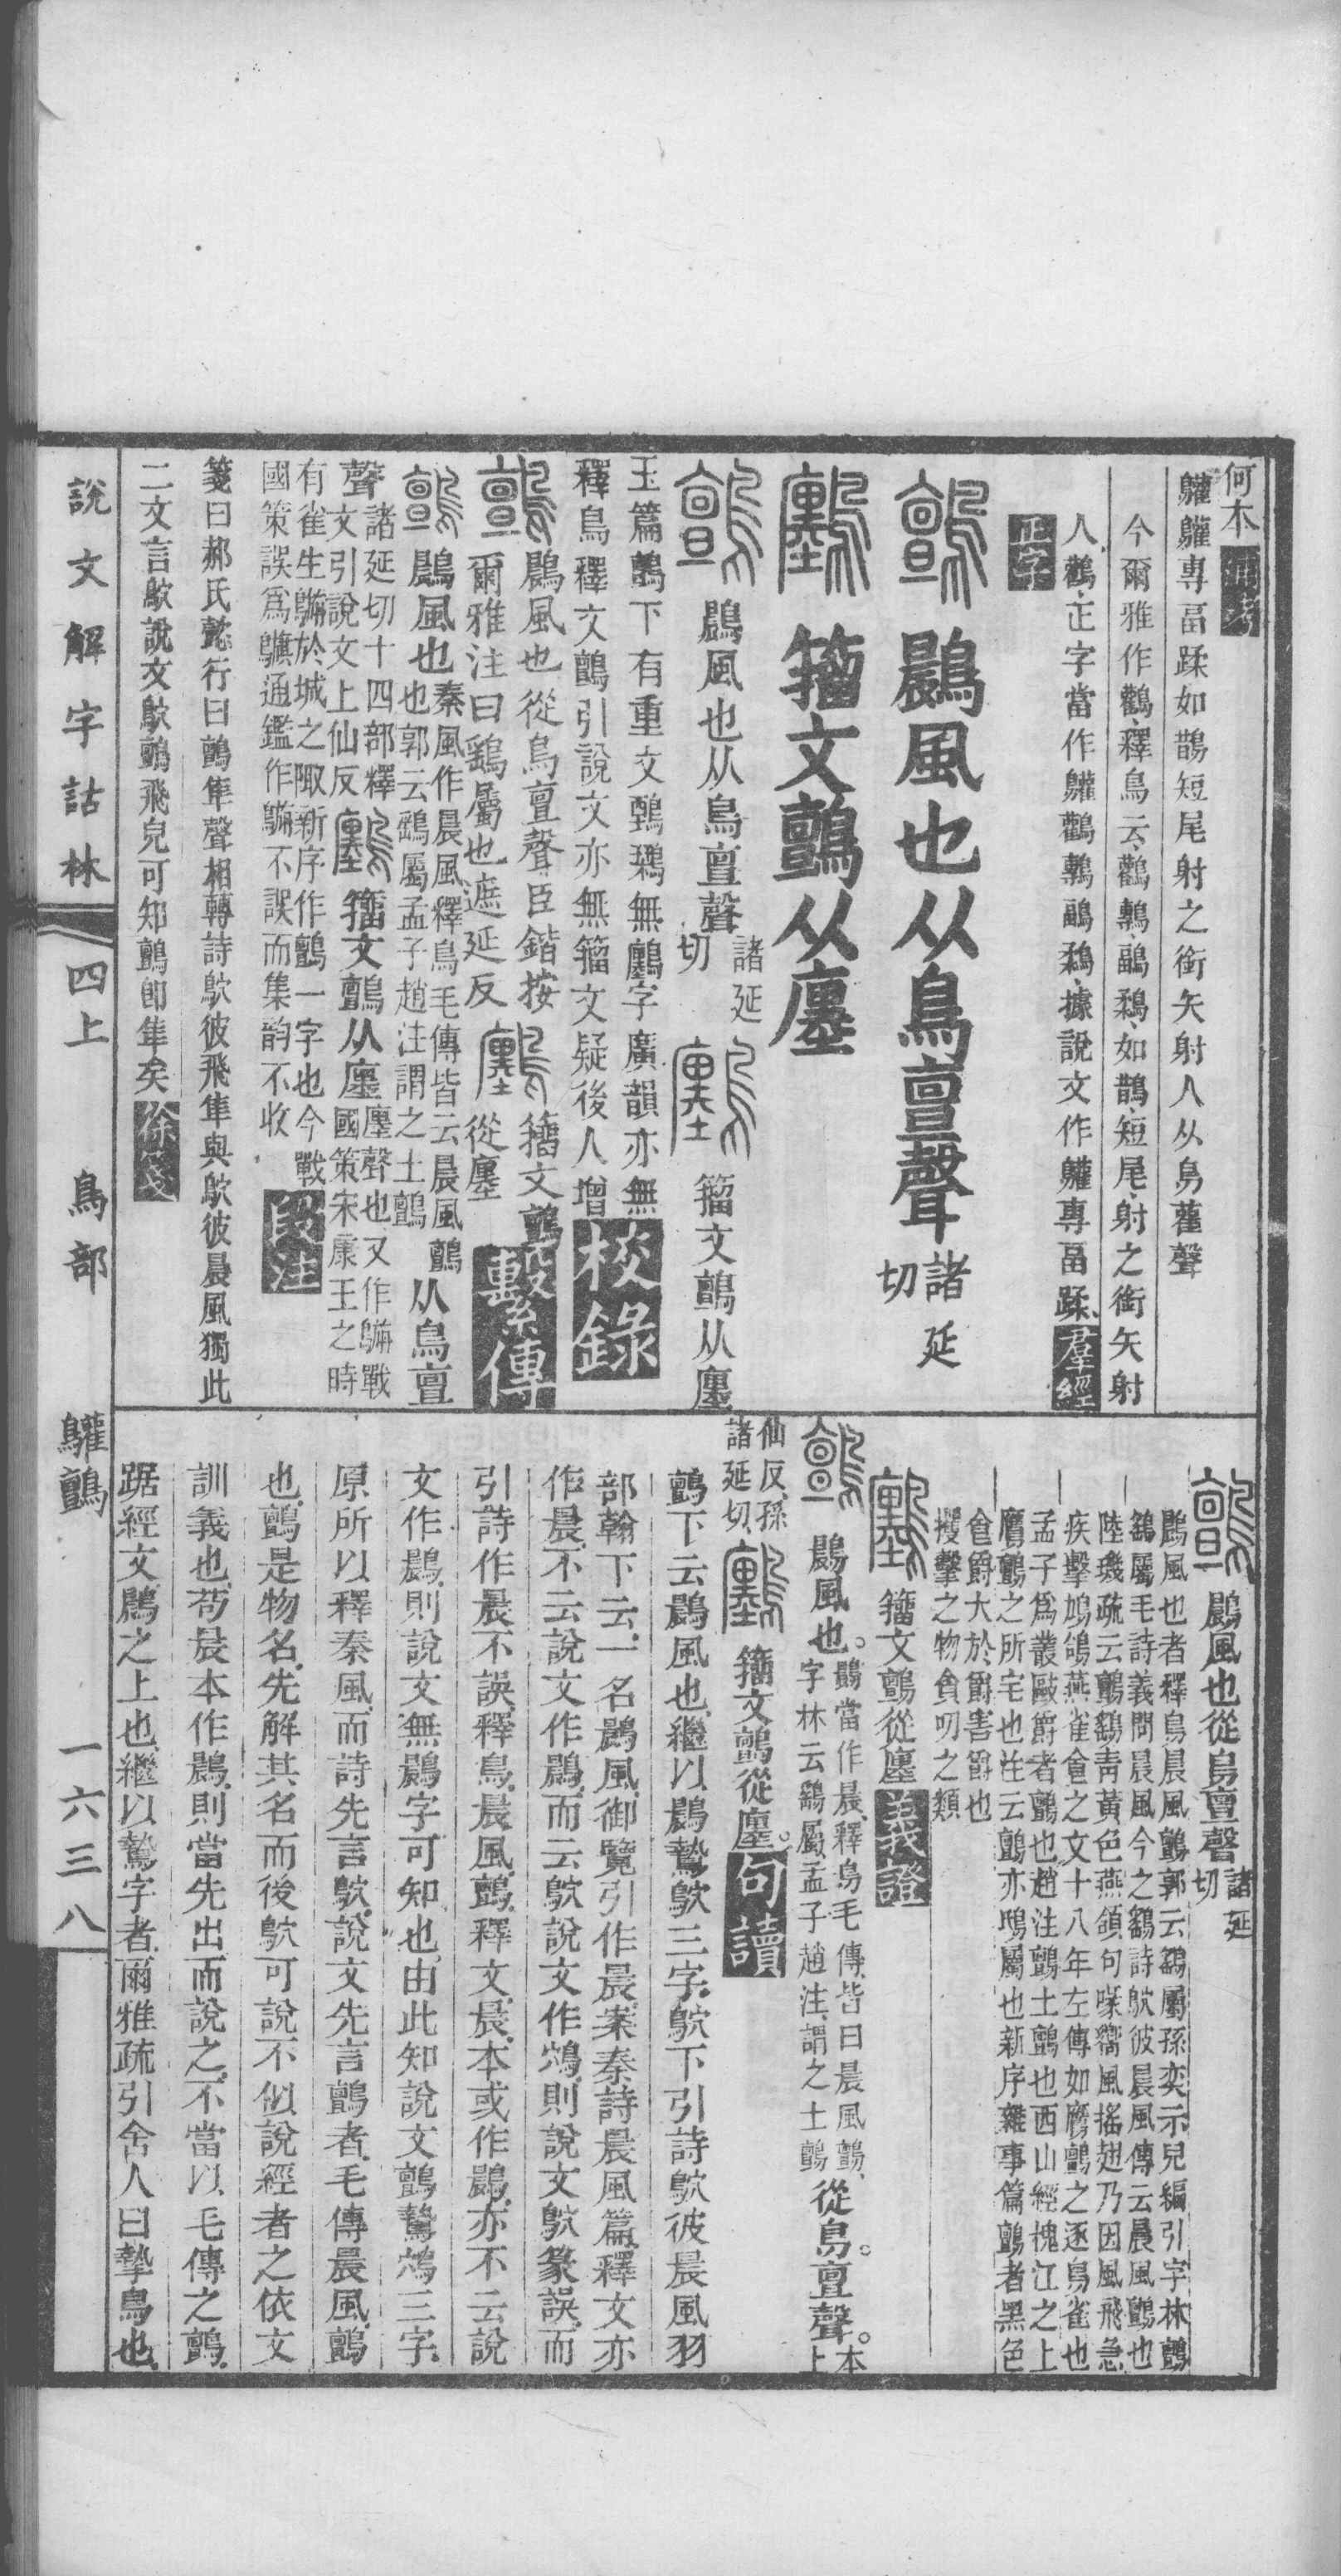 何本
鸛鸛專畐蹂如䧿短尾射之銜矢射人从鳥雚聲
今爾雅作鸛釋鳥云鸛鷒鶝鶔如鵲短尾射之銜矢射
人鸛正字當作鸛鸛鷒鶝鶔據說文作鸛專畐蹂羣經
正字
鸇 鷐風也从鳥亶聲諸延
切
鸇 籒文鸇从廛
鸇 鷐風也从鳥亶聲諸延
切 籒文鸇从廛
玉篇鸇下有重文鷒鵽無字廣韻亦無
釋鳥釋文鸇引說文亦無籒文疑後人增校錄
鸇 鷐風也從鳥亶聲臣鍇按
爾雅注曰鷂屬也遮延反 籒文鸇從廛繫傳
鸇 鷐風也秦風作晨風釋鳥毛傳皆云晨風鸇
也郭云鷂屬孟子趙注謂之土鸇从鳥亶
聲諸延切十四部釋
文引說文上仙反 籒文鸇从廛廛聲也又作戰
國策宋康王之時
有雀生於城之陬新序作鸇一字也今戰
國策誤爲通鑑作不誤而集韵不收段注
箋曰郝氏懿行曰鸇隼聲相轉詩鴥彼飛隼與鴥彼晨風獨此
二文言鴥說文鴥鸇飛皃可知鸇卽隼矣徐箋
鸇 鷐風也從鳥亶聲諸延
切
鷐風也者釋鳥晨風鸇郭云鷂屬孫奕示兒編引字林鸇
鷂屬毛詩義問晨風今之鷂詩鴥彼晨風傳云晨風鸇也
陸璣疏云鸇鷂靑黃色燕頷句喙嚮風搖翅乃因風飛急
疾擊鳩鴿燕雀食之文十八年左傳如鷹鸇之逐鳥雀也
孟子爲叢敺爵者鸇也趙注鸇土鸇也西山經槐江之上
鷹鸇之所宅也注云鸇亦鴟屬也新序雜事篇鸇者黑色
食爵大於爵害爵也
攫擊之物貪叨之類
籒文鸇從廛義證
鸇 鷐風也。鷐當作晨釋鳥毛傳皆曰晨風鸇
字林云鷂屬孟子趙注謂之土鸇從鳥。亶聲。本上
仙反孫
諸延切 籒文鸇從廛。句讀
鸇下云鷐風也繼以鷐鷙鴥三字鴥下引詩鴥彼晨風羽
部翰下云一名鷐風御覽引作晨案秦詩晨風篇釋文亦
作晨不云說文作鷐而云鴥說文作鴪則說文鴥篆誤而
引詩作晨不誤釋鳥晨風鸇釋文晨本或作鷐亦不云說
文作鷐則說文無鷐字可知也由此知說文鸇鷙鴪三字
原所以釋秦風而詩先言鴥說文先言鸇者毛傳晨風鸇
也鸇是物名先解其名而後鴥可說不似說經者之依文
訓義也苟晨本作鷐則當先出而說之不當以毛傳之鸇
踞經文鷐之上也繼以鷙字者爾雅疏引舍人曰摯鳥也
說文解字詁林 四上 鳥部 鸛鸇 一六三八